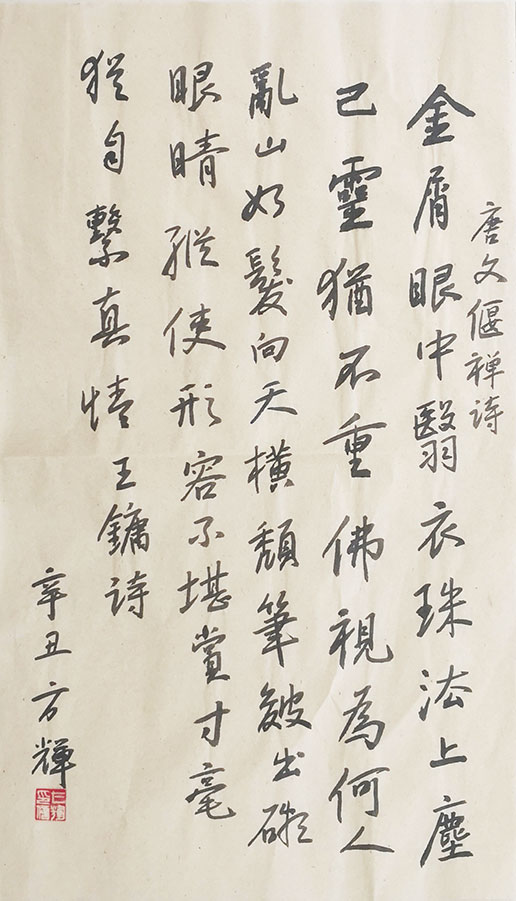 唐文偃禅诗
金屑眼中翳衣珠法上塵
己靈猶不重佛視為何人
亂山如髮向天橫頹筆皴出礙
眼睛縱使形容不堪賞寸毫
猶自繫真情王鏞詩
辛丑方輝